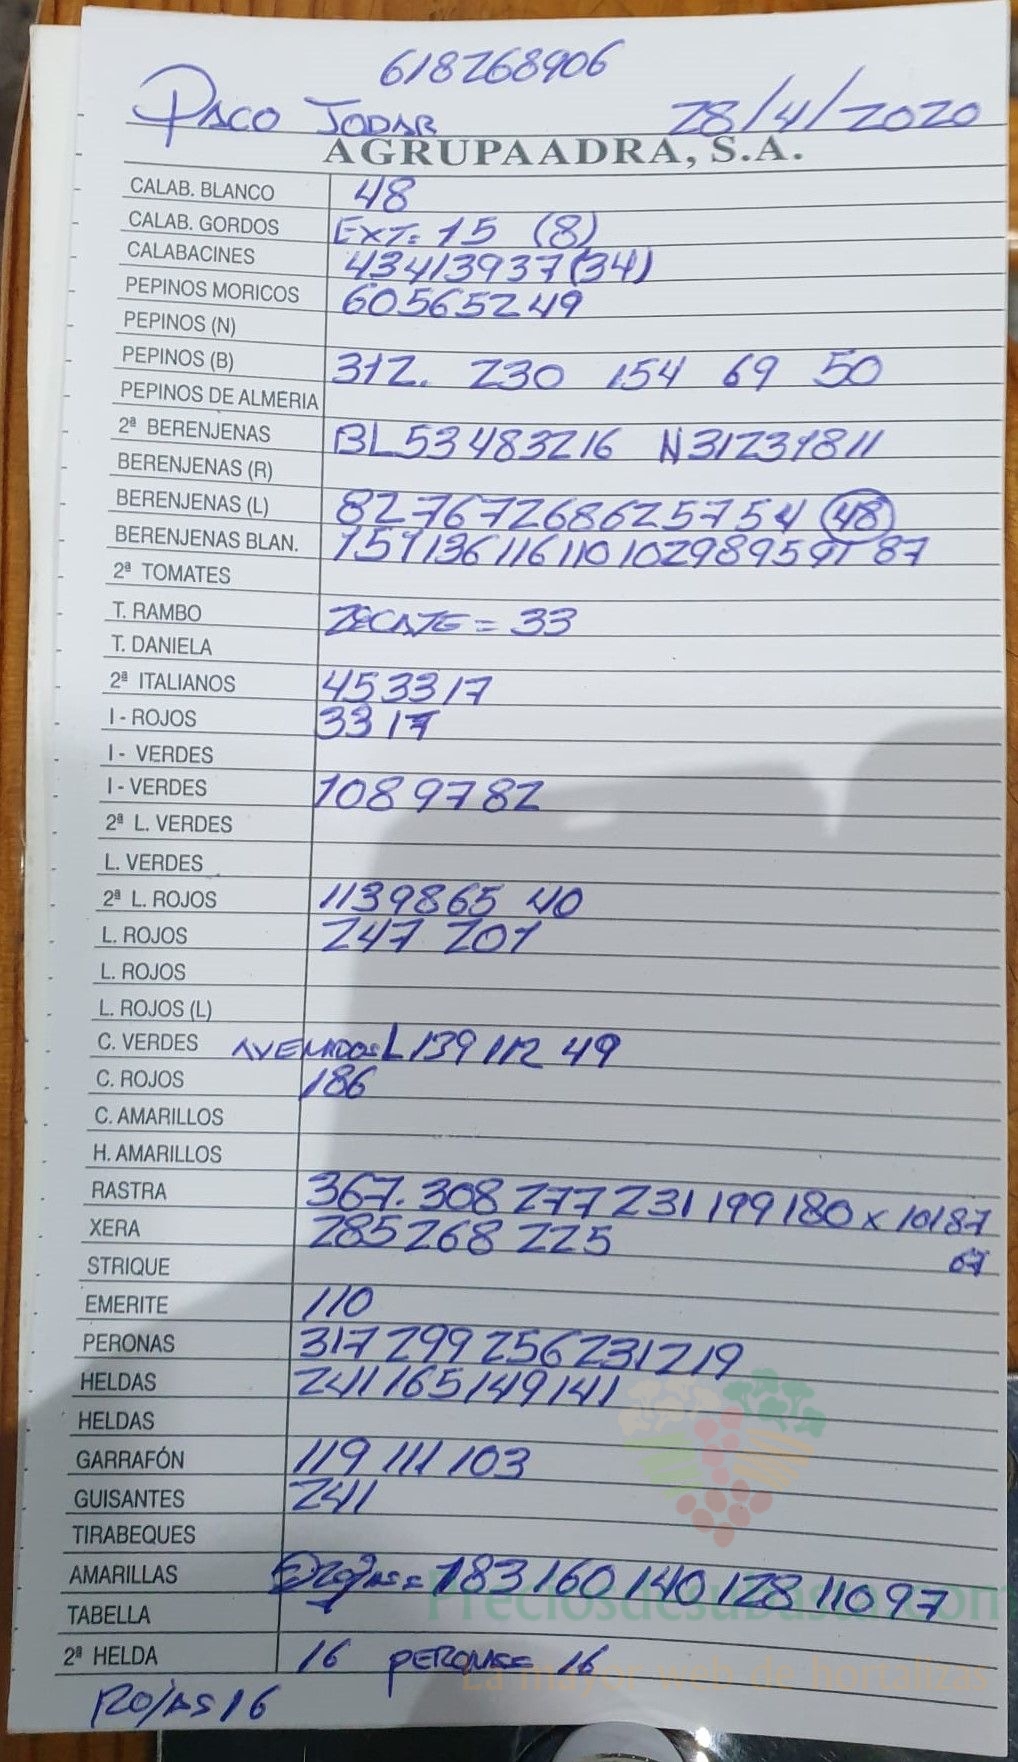 618268906
PACO JODAR 28/4/2020
AGRUPAADRA, S.A.
CALAB. BLANCO 48
CALAB. GORDOS EXT= 15 (8)
CALABACINES 43413937(34)
PEPINOS MORICOS 60565249
PEPINOS (N)
PEPINOS (B) 312. 230 154 69 50
PEPINOS DE ALMERIA
2ª BERENJENAS BL53483216 N31231811
BERENJENAS (R)
BERENJENAS (L) 82767268625754 (48)
BERENJENAS BLAN. 151136116110102989591 87
2ª TOMATES
T. RAMBO = 33
T. DANIELA
2ª ITALIANOS 453317
I - ROJOS 3317
I - VERDES
I - VERDES 1089782
2ª L. VERDES
L. VERDES
2ª L. ROJOS 1139865 40
L. ROJOS 247 201
L. ROJOS
L. ROJOS (L)
C. VERDES L 139 112 49
C. ROJOS 186
C. AMARILLOS
H. AMARILLOS
RASTRA 367. 308 277 231 199 180 x 10187
XERA 285 268 225
STRIQUE
EMERITE 110
PERONAS 317 299 256 231 219
HELDAS 241 165 149 141
HELDAS
GARRAFÓN 119 111 103
GUISANTES 241
TIRABEQUES
AMARILLAS ROJAS = 183 160 140 128 110 97
TABELLA
Preciosdesubasta.com
2ª HELDA 16 PERONAS= 16
La mayor web de hortalizas
ROJAS 16